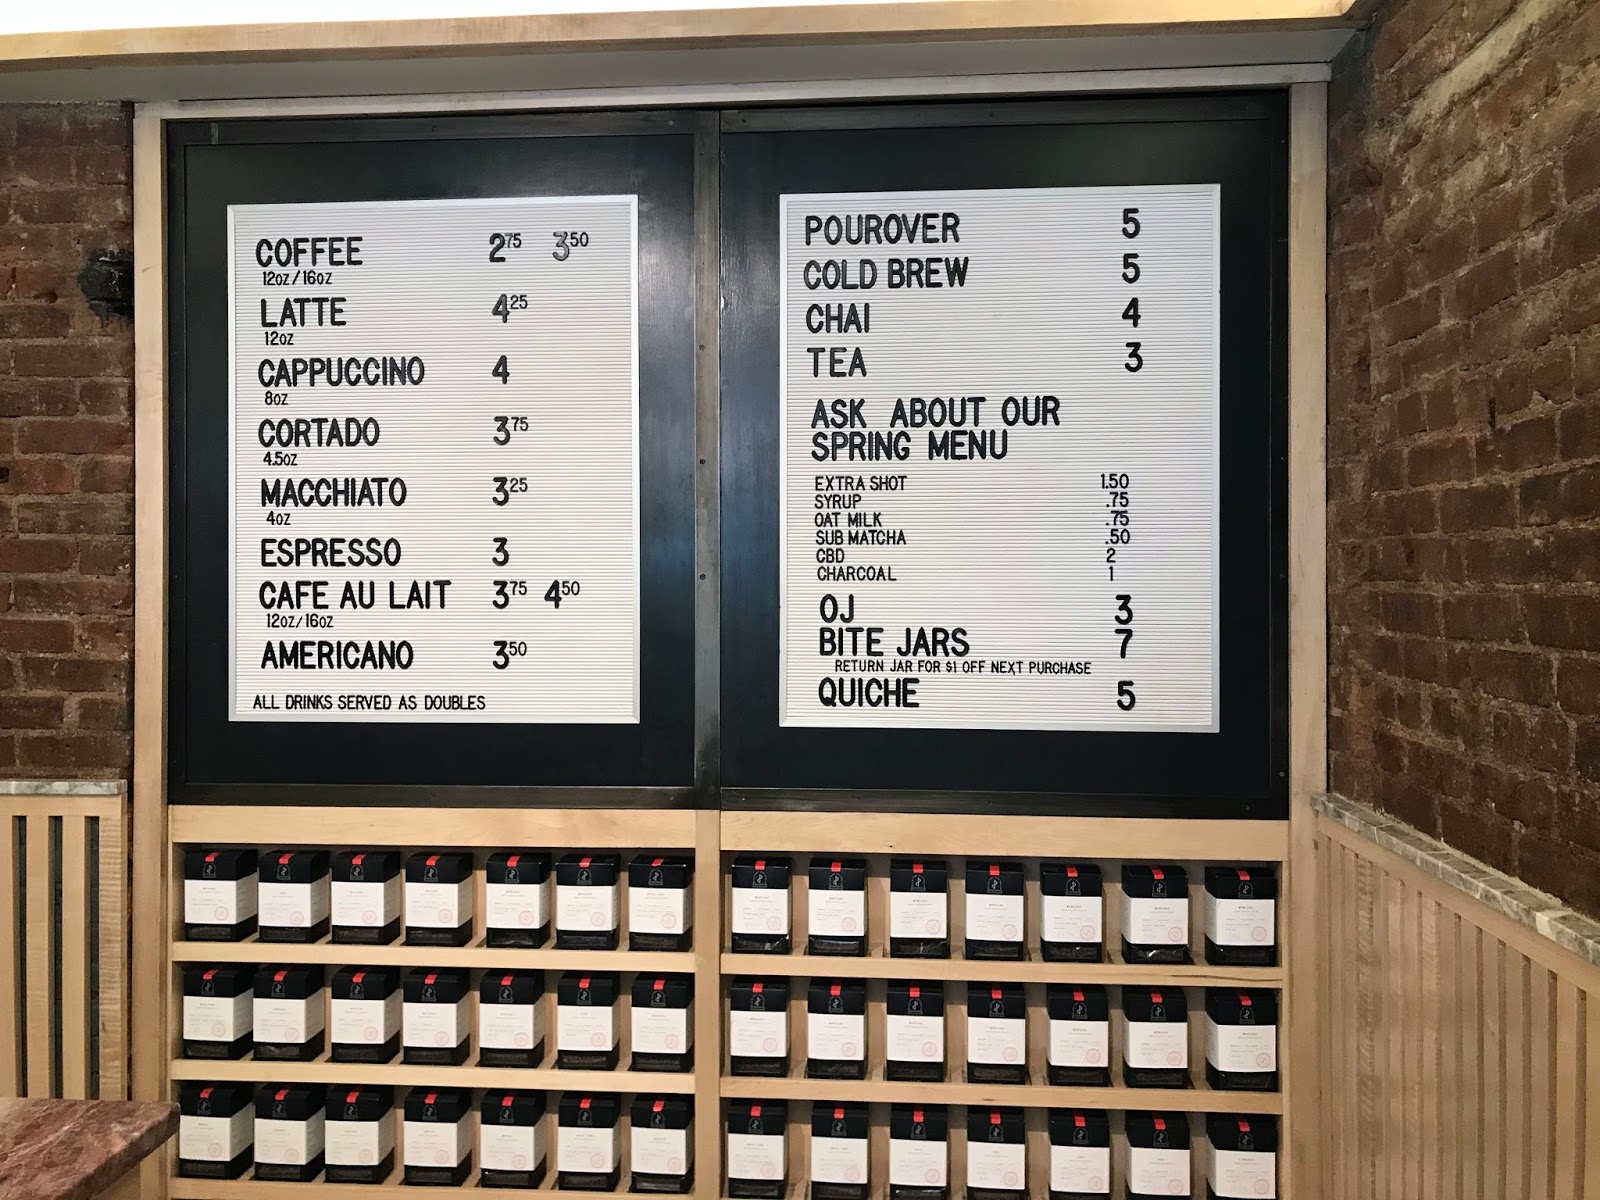 COFFEE 2 75 3 50
12oz/16oz
LATTE 4 25
12oz
CAPPUCCINO 4
8oz
CORTADO 3 75
4.5oz
MACCHIATO 3 25
4oz
ESPRESSO 3
CAFE AU LAIT 3 75 4 50
12oz/16oz
AMERICANO 3 50
ALL DRINKS SERVED AS DOUBLES
POUROVER 5
COLD BREW 5
CHAI 4
TEA 3
ASK ABOUT OUR
SPRING MENU
EXTRA SHOT 1.50
SYRUP .75
OAT MILK .75
SUB MATCHA .50
CBD 2
CHARCOAL 1
OJ 3
BITE JARS 7
RETURN JAR FOR $1 OFF NEXT PURCHASE
QUICHE 5